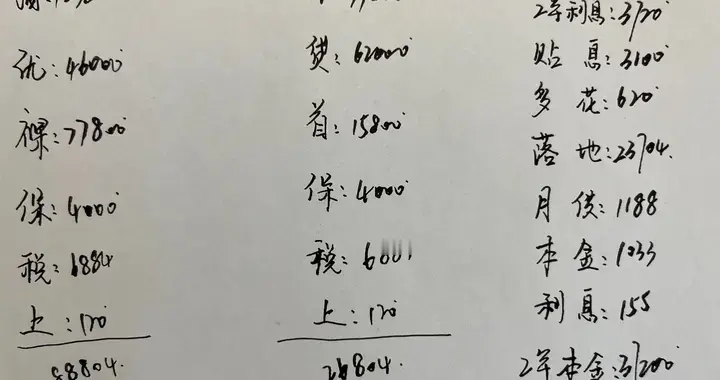 优:46000
裸:77800
保:4000
税:6884
上:120
88804.
贷:62000
首:15800
保:4000
税:
上:120
804.
2年利息:3720
贴息:3100
多花:620
落地:
月供:1188
本金:1033
利息:155
2年本金: